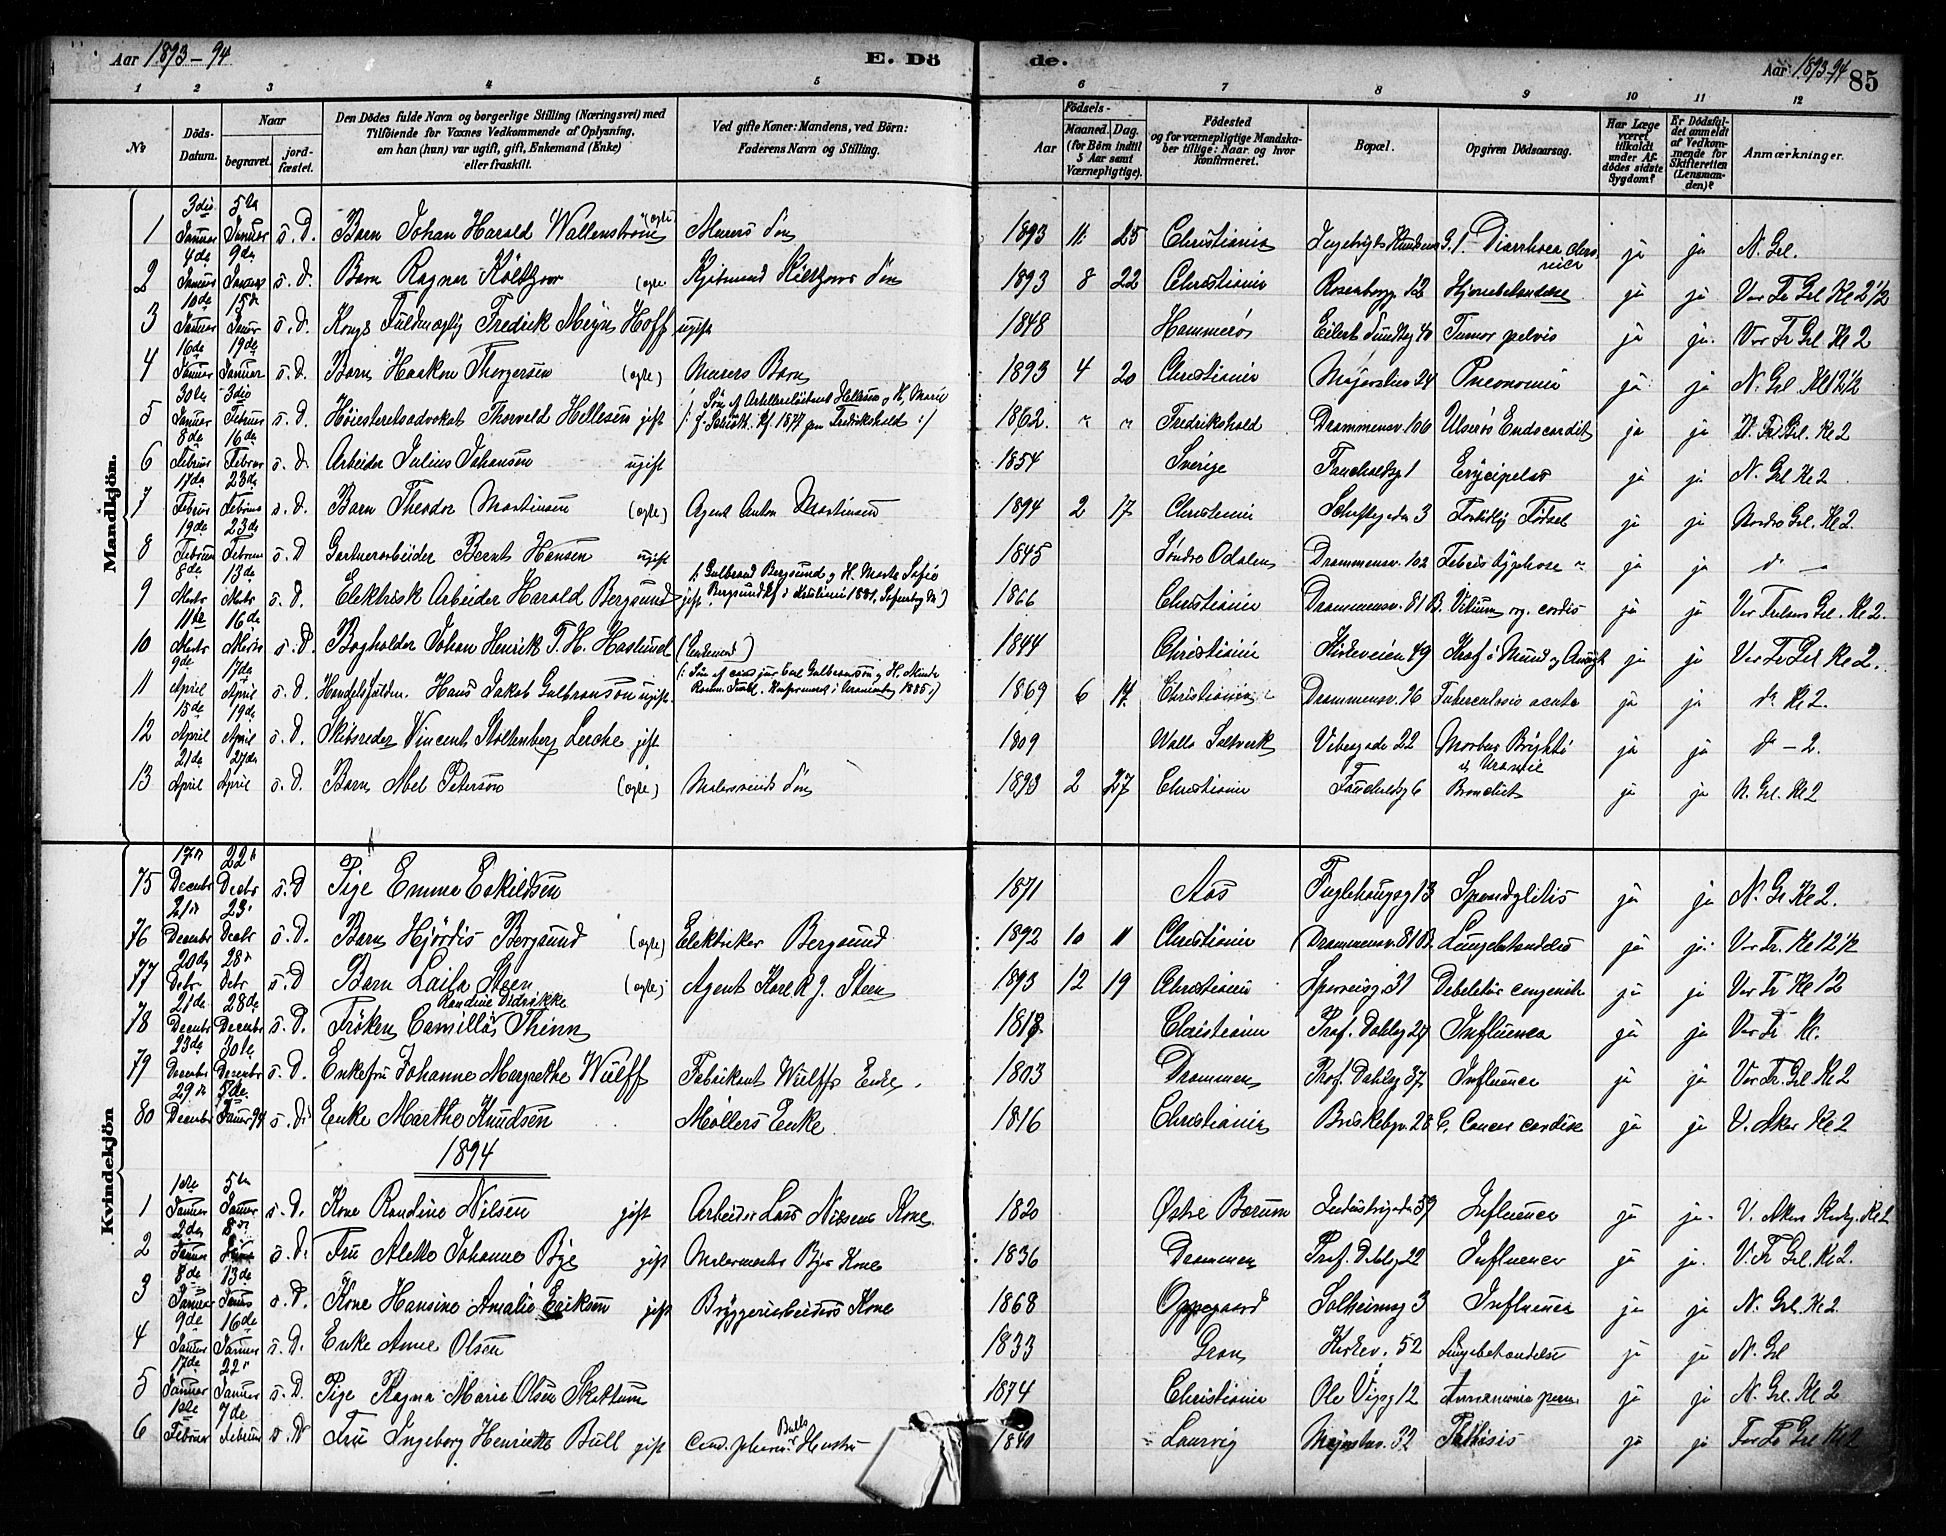 Aar 1893-94
E. Dö
de.
Aar 1893-94
85
1 2 3 4 5 6 7 8 9 10 11 12
No
Döds-Datum.
Naar
begravet.
jord-fæstet.
Den Dödes fulde Navn og borgerlige Stilling (Næringsvei) med
Tilföiende for Voxnes Vedkommende af Oplysning,
om han (hun) var ugift, gift, Enkemand (Enke)
eller fraskilt.
Ved gifte Koner: Mandens, ved Börn:
Faderens Navn og Stilling.
Födsels-
Aar
Maaned. Dag.
(for Börn indtil
5 Aar samt
Værnepligtige).
Födested
og for værnepligtige Mandska-
ber tillige: Naar og hvor
Konfirmeret.
Bopæl.
Opgiven Dödsaarsag.
Har Læge
været
tilkaldt
under Af-
dödes sidste
Sygdom?
Er Dödsfal-
det anmeldt
af Vedkom-
mende for
Skifteretten
(Lensman-
den)?
Anmærkninger.
Mandkjön.
1 3die Januar 5te Januar s. D. Barn Johan Harald Wallenstrøm (ægte) Murers Søn 1893 11 25 Christiania Diarrhoea ja ja N. Grl.
2 4de Januar 9de Januar s. d. Barn Ragnar (ægte) Kjøbmand Søn 1893 8 22 Christiania Rosenborgg. 12 Hjernebetændelse ja ja Vor Fr Grl Kl 2 1/2
3 10de Januar 15de Januar s. d. Kongs Fuldmægtig Fredrik Meyn Hoff ugift 1848 Hammerø Eilert Sundtsg 40 Tumor pelvis ja ja Vor Fr Grl. Kl 2
4 16de Januar 19de Januar s. D. Barn Haakon Thorgersen (ægte) Murers Barn 1893 4 20 Christiania Majorstuv 24 Pneumoni ja ja N. Grl Kl 12 1/2
5 30te Januar 3die Februar s. D. Høiesteretsadvokat Thorvald Hellesen gift 1862 " " Fredrikshald Drammensv. 106 Ulserøs Endocardit ja ja V. Fr Grl. Kl 2
6 8de Februar 16de Februar s. d. Arbeider Julius Johansen ugift 1854 Sverige Fauchaldsg 1 Erysipelas ja ja N. Grl Kl 2
7 17de Februar 23de Februar s. d. Barn Theodor Martinsen (ægte) Agent Anton Martinsen 1894 2 17 Christiania Schultzgaden 3 Fortidlig Fødsel ja ja Nordre Grl. Kl 2.
8 19de Februar 23de Februar s. D Gartnerarbeider Bernt Hansen ugift 1845 Søndre Odalen Drammensv. 102 Febris typhose ja ja do —
9 8de Marts 13de Marts s. D. Elektrisk Arbeider Harald Bergsund gift 1866 Christiania Drammensv. 81 B. Vitium org. cordis ja ja Vor Frelsers Grl. Kl 2.
10 11te Marts 16de Marts s. D. Bogholder Johan Henrik T. H. Haslund (Enkemand) 1844 Christiania Kirkeveien 49 Kræf i Mund og Ansigt ja ja Vor Fr Grl Kl 2.
11 9de April 17de April s. D. Handelsfuldm. Hans Jakob Gulbranson ugift. 1869 6 14 Christiania Drammensv. 96 Tuberculosis acuta ja ja do Kl 2.
12 15de April 19de April s. D. Skibsreder Vincent Stoltenberg Lerche gift 1809 Wallø Saltverk Vibesgade 22 Morbus Brightii & Uræmie ja ja do - 2.
13 21de April 27de April s. D. Barn Abel Peterson (ægte) Malersvends Søn 1893 2 27 Christiania Fauchaldsg 6 Bronchit ja ja N. Grl. Kl 2
Kvindekjön
75 17de Decembr 22de Decbr s. D Pige Emma Eskildsen 1871 Aas Fuglehaugsg 13 Spondylitis ja ja N. Gr. Kl 2.
76 21de Decembr 23de Decbr s. D. Barn Hjørdis Bergsund (ægte) Elektriker Bergsund 1892 10 11 Christiania Drammensv. 81 B. Lungebetændelse ja ja. Vor Fr. Kl 12 1/2
77 20de Decbr 28de Decbr s. D Barn Laila Steen (ægte) Agent Karl R J. Steen 1893 12 19 Christiania Sporveisg 31 Debelitas congenita ja ja Vor Fr Kl 12
78 21de Decembr 28de Decembr s. D. Frøken Camilla Randine Didrikke Thinn 1818 Christiania Prof. Dahlsg 24 Influenca ja ja Vor Fr Kl.
79 23de Decembr 30te Decembr s. D. Enkefru Johanne Margrethe Wulff Fabrikant Wulffs Enke. 1803 Drammen Prof. Dahlsg 37 Influence ja ja Vor Fr. Grl. Kl 2
80 29de Decembr 5te Januar 94 s. D. Enke Marthe Knudsen Møllers Enke 1816 Christiania Briskebyv. 28 C. Cancer cardiæ ja ja V. Aker Kl 2
1894
1 1ste Januar 5te Januar s. D. Kone Randine Nilsen gift Arbeider Lars Nilsens Kone. 1820 Østre Bærum Industrigaden 59 Influenca ja ja. V. Akers Kirkeg. Kl 2
2 2den Januar 8de s. D. Fru Alette Johanne Bye gift Malermester Byes Kone 1836 Drammen Prof. Dahlsg 22 Influenca ja ja. V. Fr Grl. Kl 2.
3 8de Januar 13de Januar s. D. Kone Hansine Amalie Eriksen gift Bryggeriarbeiders Kone 1868 Oppegaard Solheimsg 3 Influenca ja ja N. Grl. Kl 2
4 9de Januar 16de Januar s. D. Enke Anne Olsen 1833 Gran Kirkev. 52 Lungebetændelse ja ja N. Grl
5 17de Januar 22de Januar s. D. Pige Ragna Marie Olsen Skittum 1874 Christiania Ole Vigsg 12 ja ja N. Grl. Kl 2
6 1ste Februar 7de Februar s. D Fru Ingeborg Henriette Bull gift Cand. pharm. Bulls Hustru 1840 Laurvig Majorstuv. 32 Phthisis ja ja Vor Fr Grl Kl 2